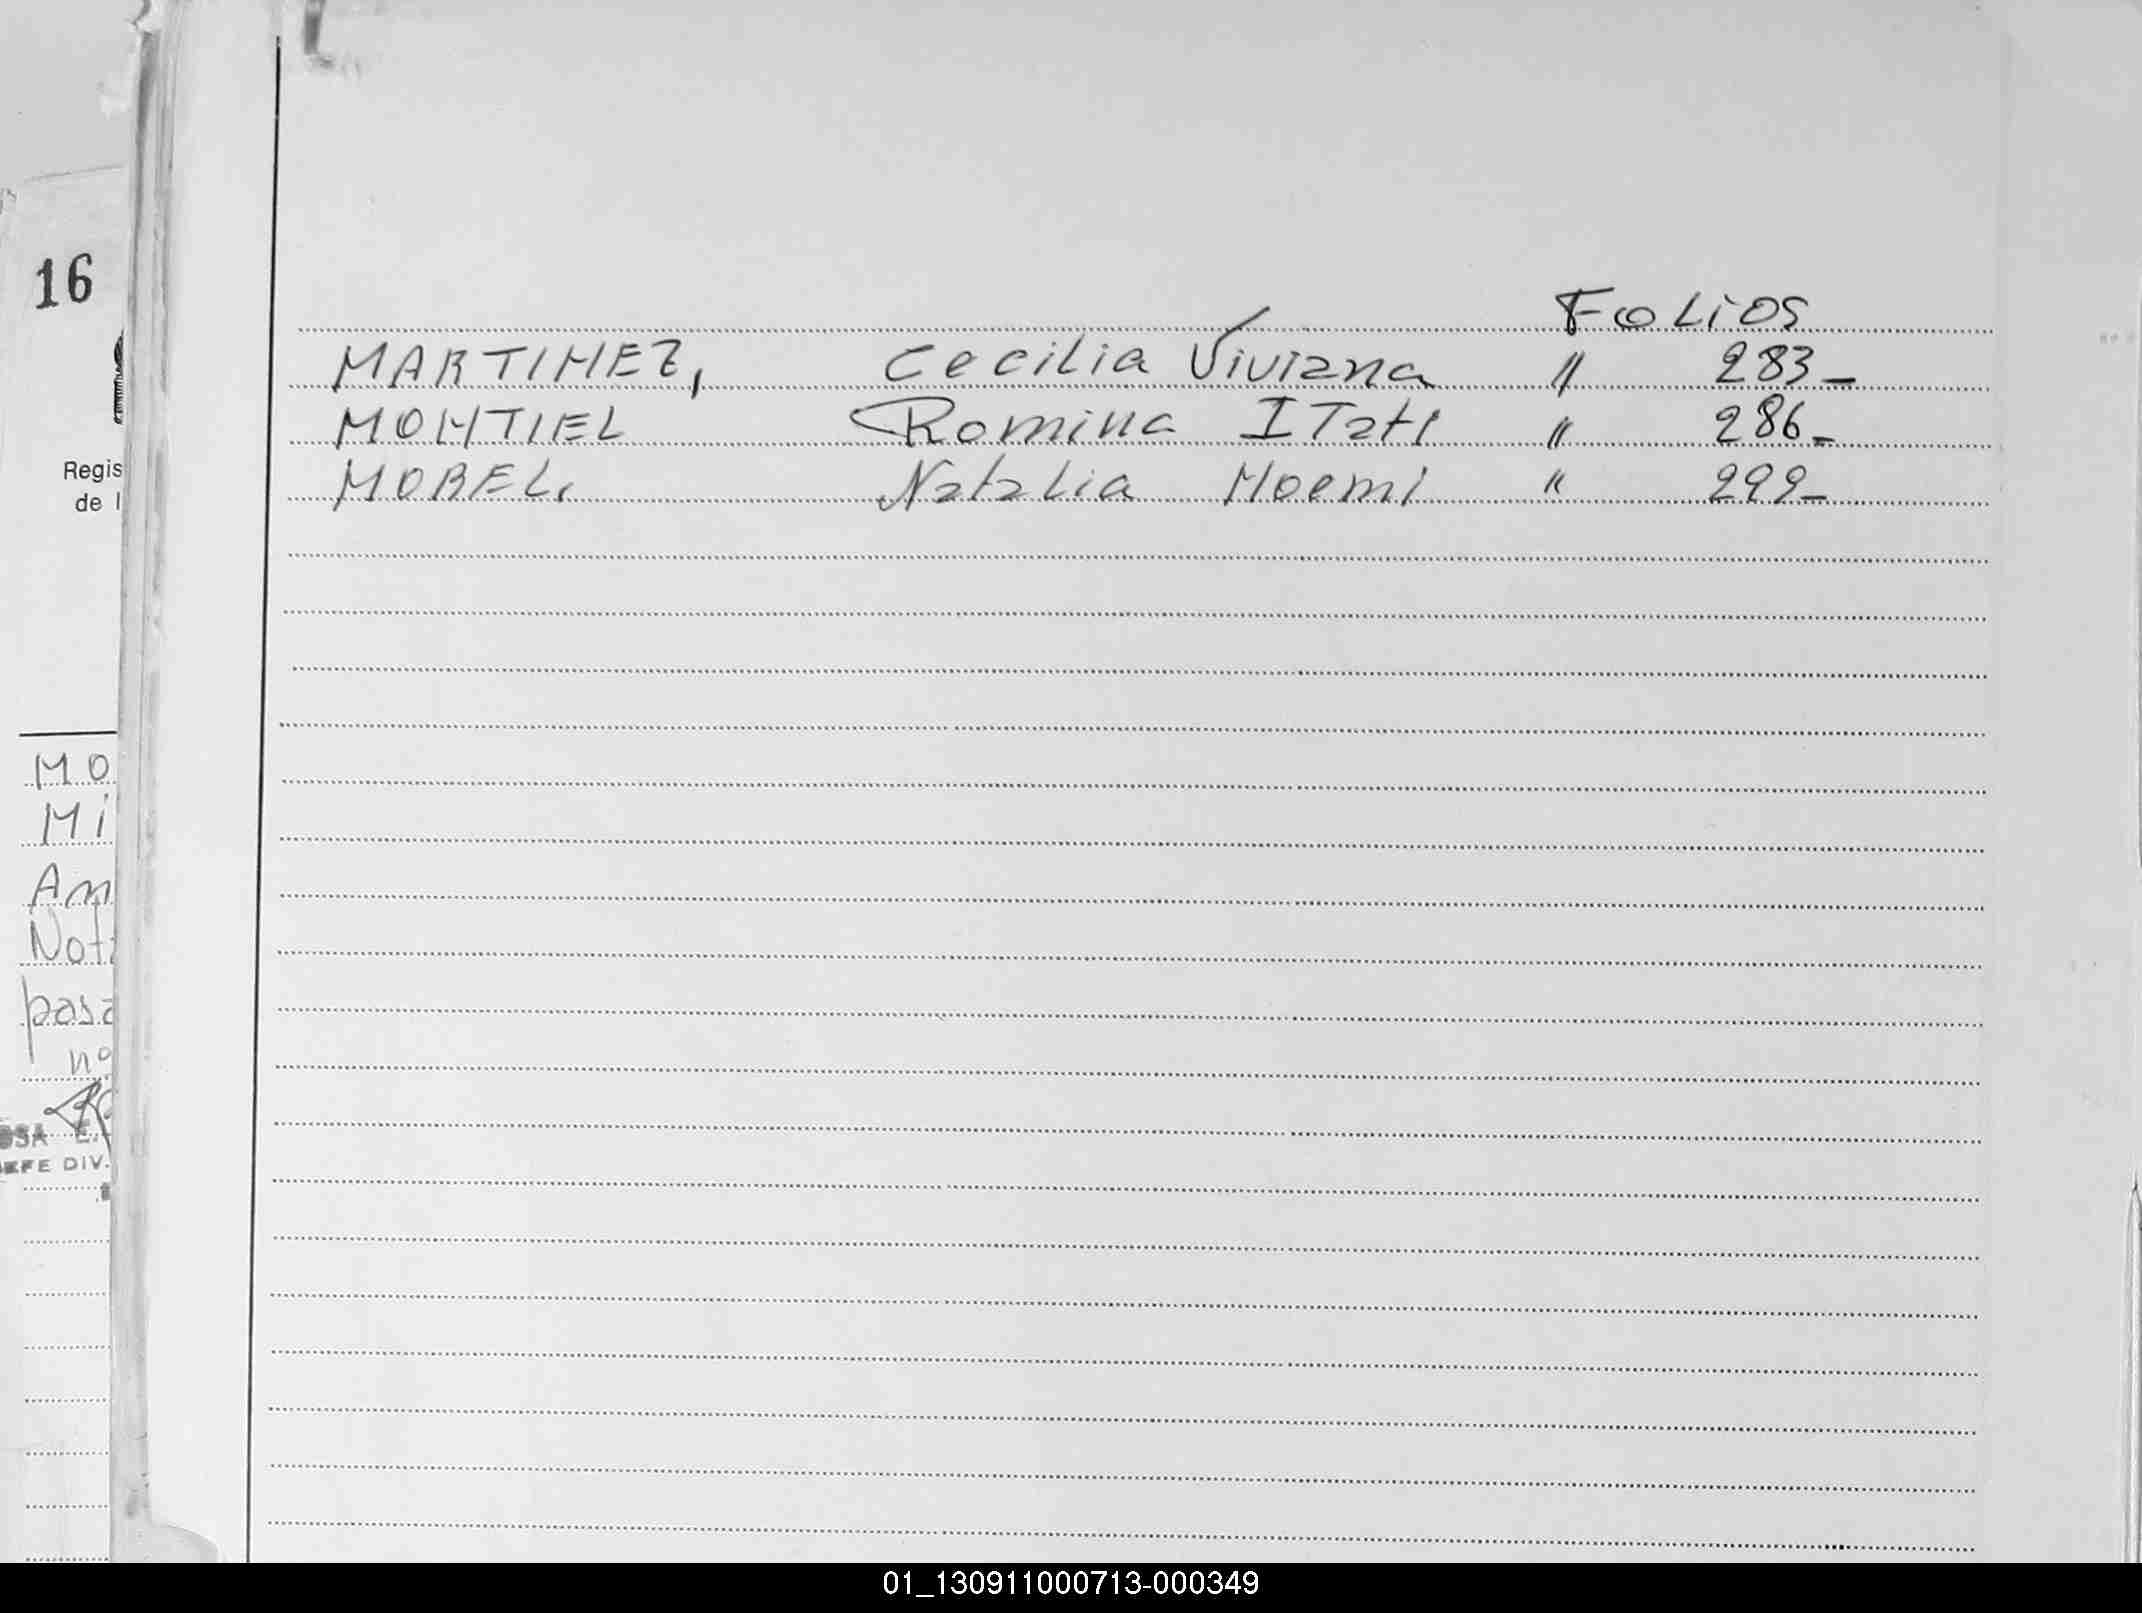 16
Regis
de l
MO
Mi
Am
Not
pasa
nº
OSA E.
JEFE DIV.
Folios
MARTINEZ, Cecilia Viviana " 283-
MONTIEL Romina ITatI " 286-
MOREL, Natalia NoemI " 299-
01_130911000713-000349